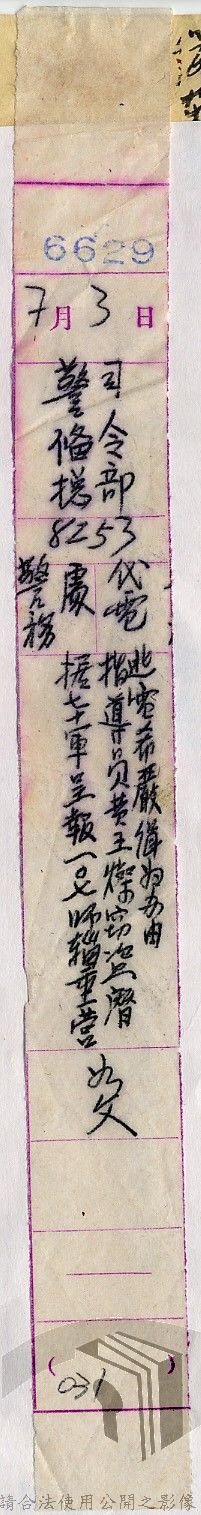 6629
7月3日
警備總
司令部
8253
代電
警務
處
據七十軍呈報一〇七師輜重營
指導員黃玉燦窃盜潛
逃電希嚴緝為荷由
如文
(031)
請合法使用公開之影像